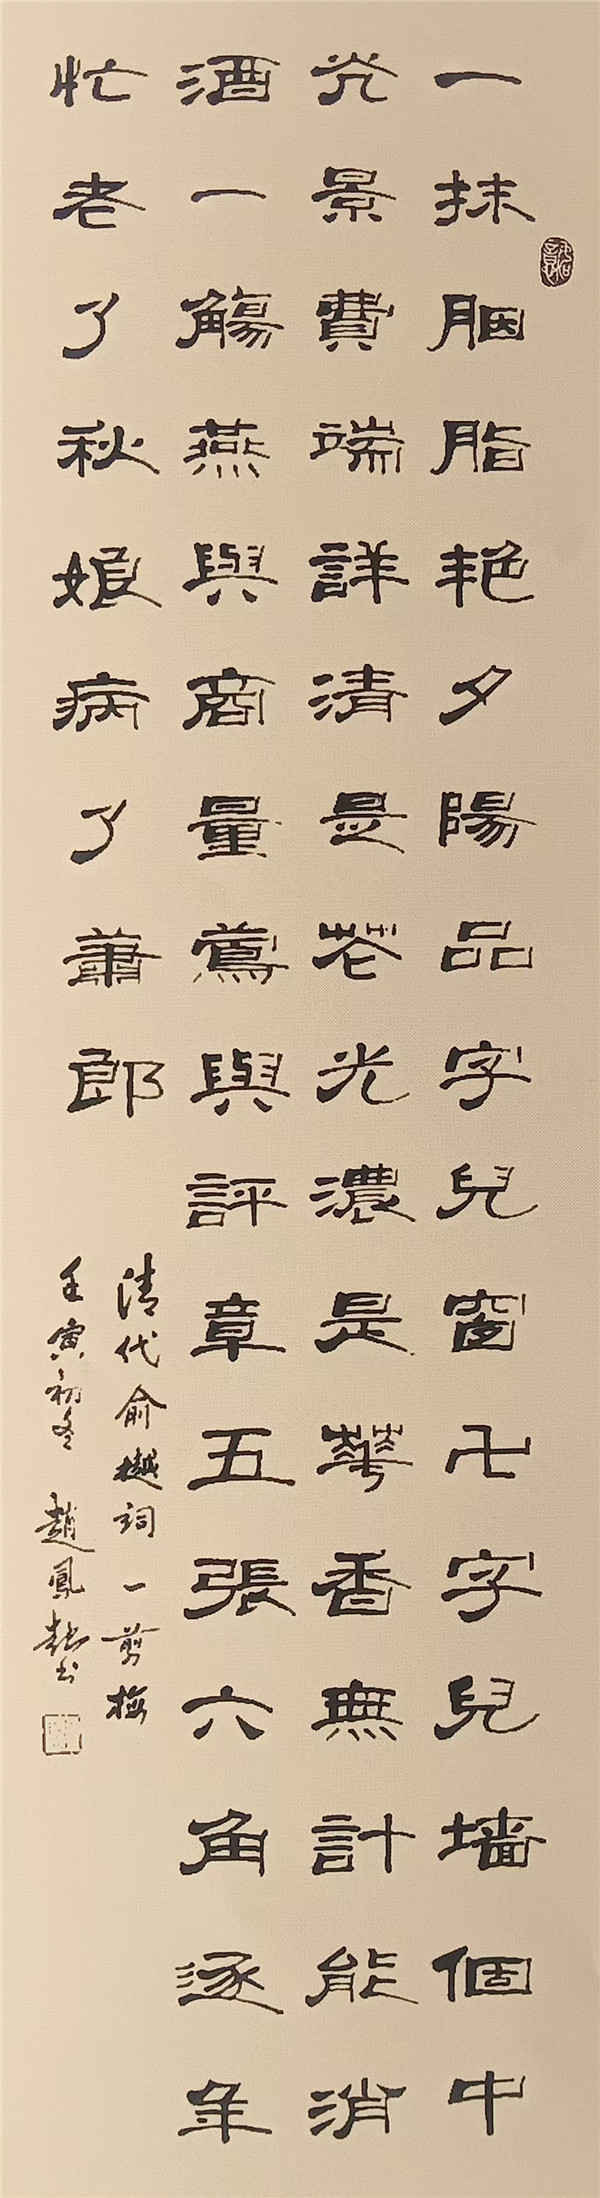 一抹胭脂艳夕陽品字兒窗卍字兒墻個中
光景費端詳清是花光濃是華香無計能消
酒一觴燕與商量鶯與評章五張六角逐年
忙老了秋娘病了蕭郎
清代俞樾詞一剪梅
壬寅初冬趙鳳